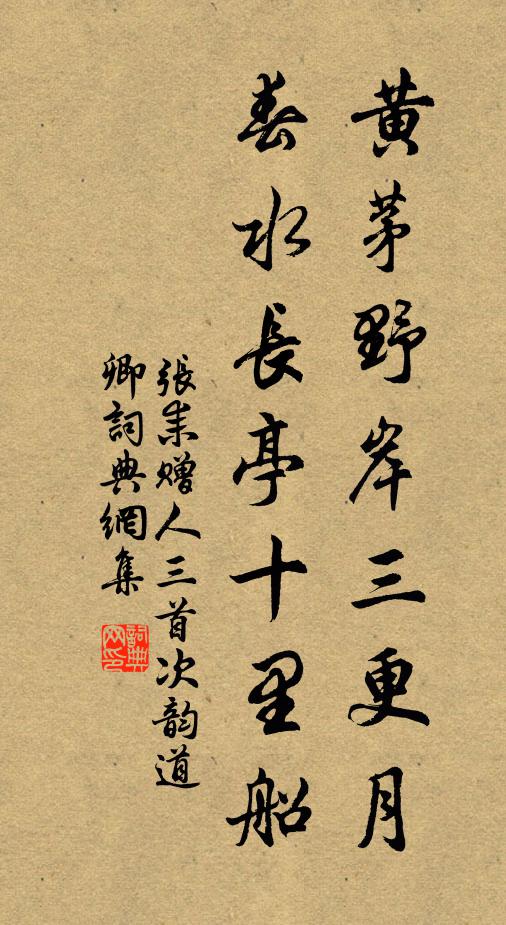 黄茅野岸三更月
春水長亭十里船
張耒赠人三首次韵道
卿詞典網集
詞典网印